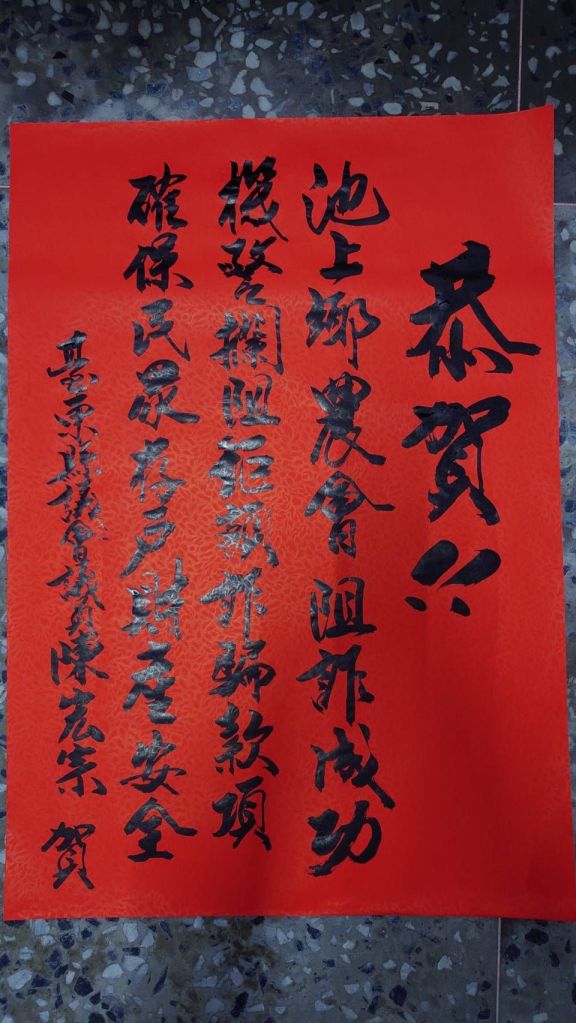 恭賀!!
池上鄉農會 阻詐成功
機警攔阻鉅額詐騙款項
確保民眾存戶財產安全
臺東縣議會議員陳宏宗 賀